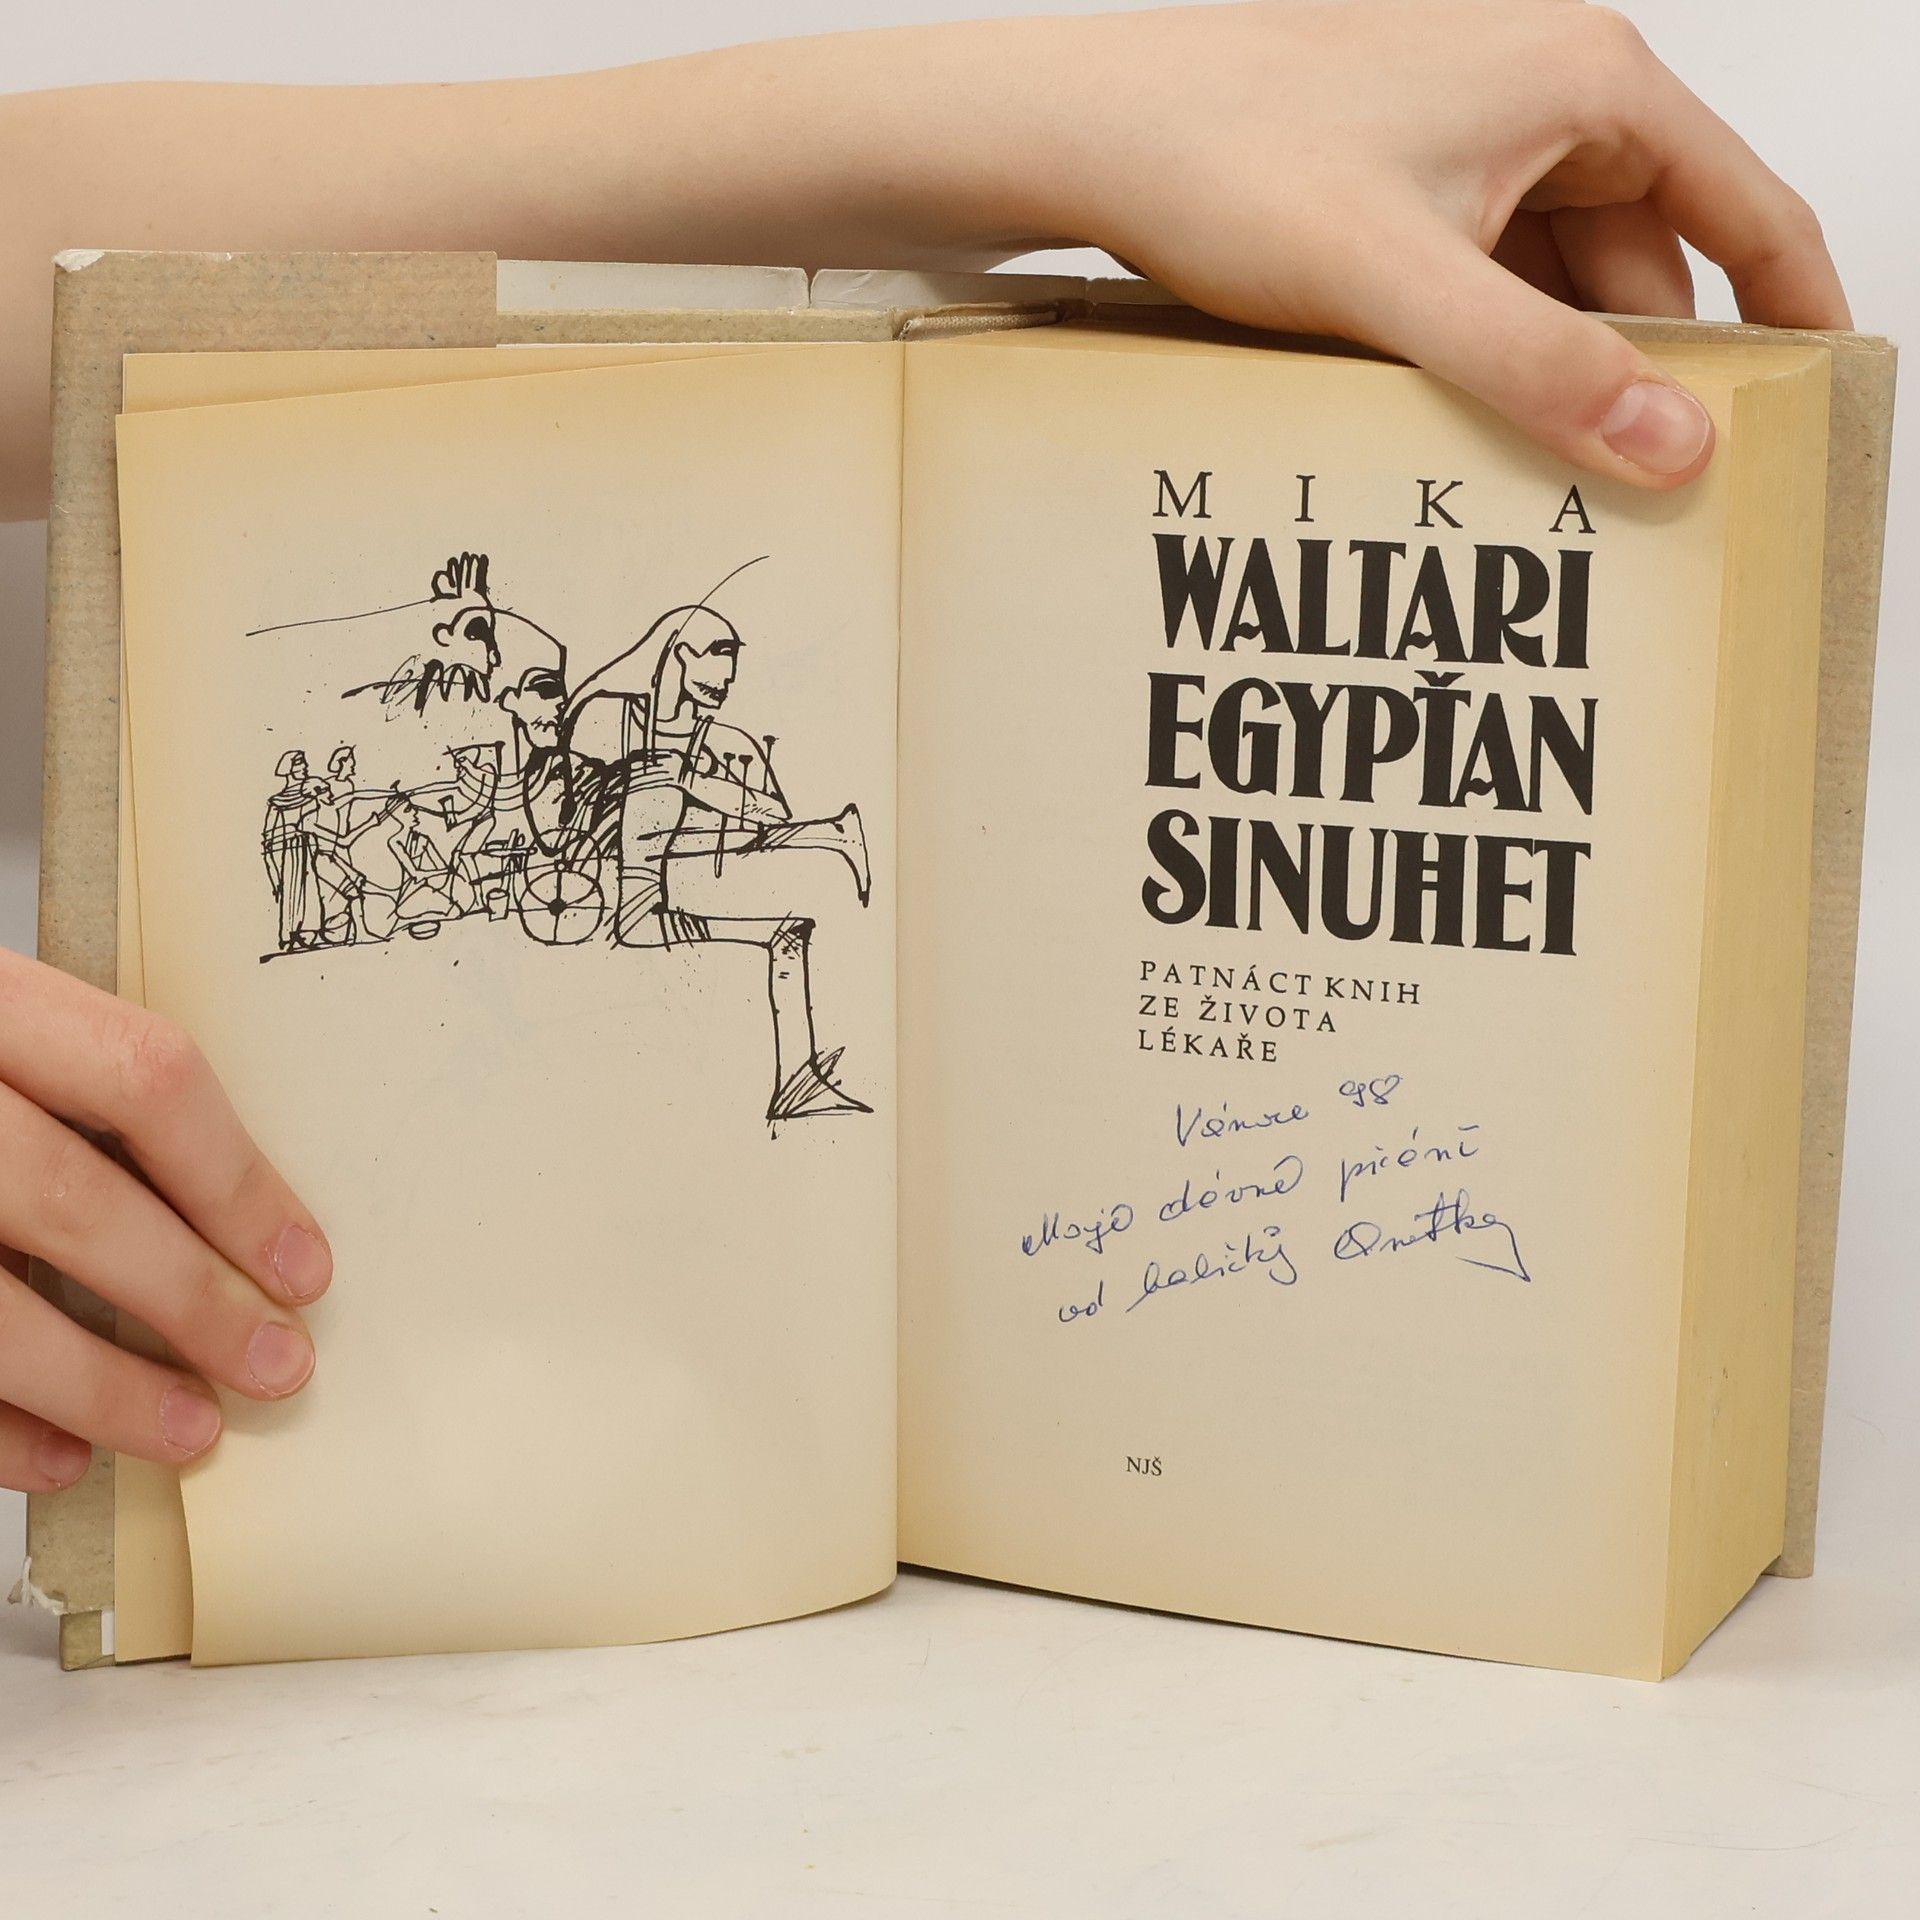 MIKA
WALTARI
EGYPŤAN
SINUHET
PATNÁCT KNIH
ZE ŽIVOTA
LÉKAŘE
Vánoce 98
Moje dávné přání
od babičky Anitky
NJŠ